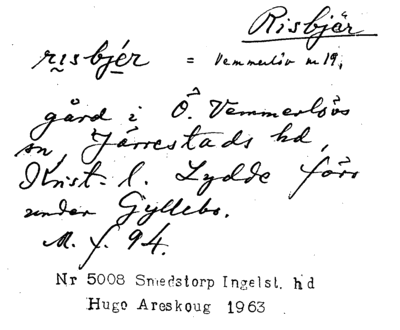 Risbjär
risbjér = Vemmerlöv nr 19,
gård i Ö. Vemmerlövs
sn, Järrestads hd,
Krist. l. Lydde förr
under Gyllebo.
M. f. 94.
Nr 5008 Smedstorp Ingelst. hd
Hugo Areskoug 1963